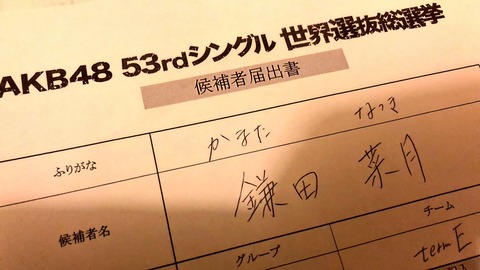 AKB48 53rdシングル 世界選抜総選挙
候補者届出書
ふりがな かまた なつき
候補者名 鎌田 菜月
グループ チーム
termE